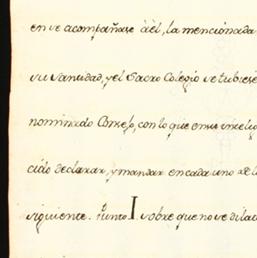 en se acompañase à èl, la mencionada
su santidad, y el Sacro Colegio se tubiese
nominado Consejo, con lo que en su
cido declarar, y mandar en cada uno de l
siguiente. Punto I sobre que no se dila